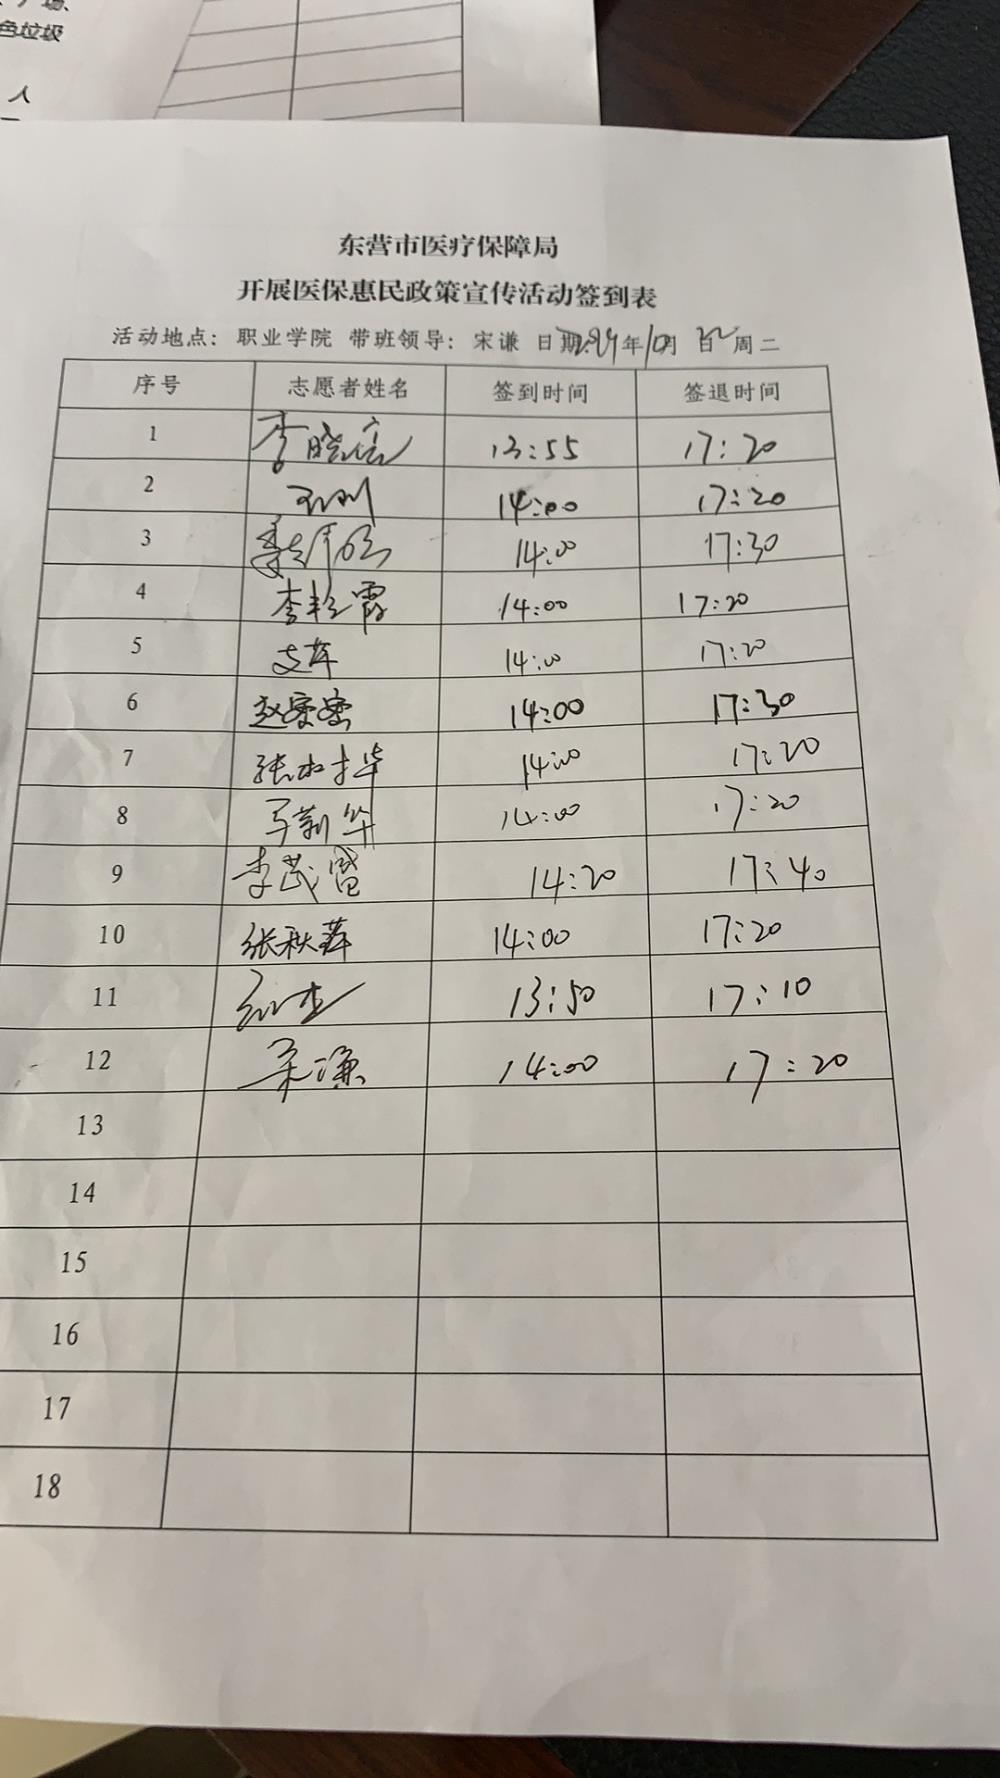 色垃圾
人
东营市医疗保障局
开展医保惠民政策宣传活动签到表
活动地点：职业学院 带班领导：宋谦 日期 年10月 日 周二
序号 志愿者姓名 签到时间 签退时间
1 李晓 13:55 17:20
2 14:00 17:20
3 14:00 17:30
4 李艳霞 14:00 17:20
5 14:00 17:20
6 赵蜜蜜 14:00 17:30
7 张 华 14:00 17:20
8 马新华 14:00 17:20
9 李茂盛 14:20 17:40
10 张秋萍 14:00 17:20
11 13:50 17:10
12 宋谦 14:00 17:20
13
14
15
16
17
18